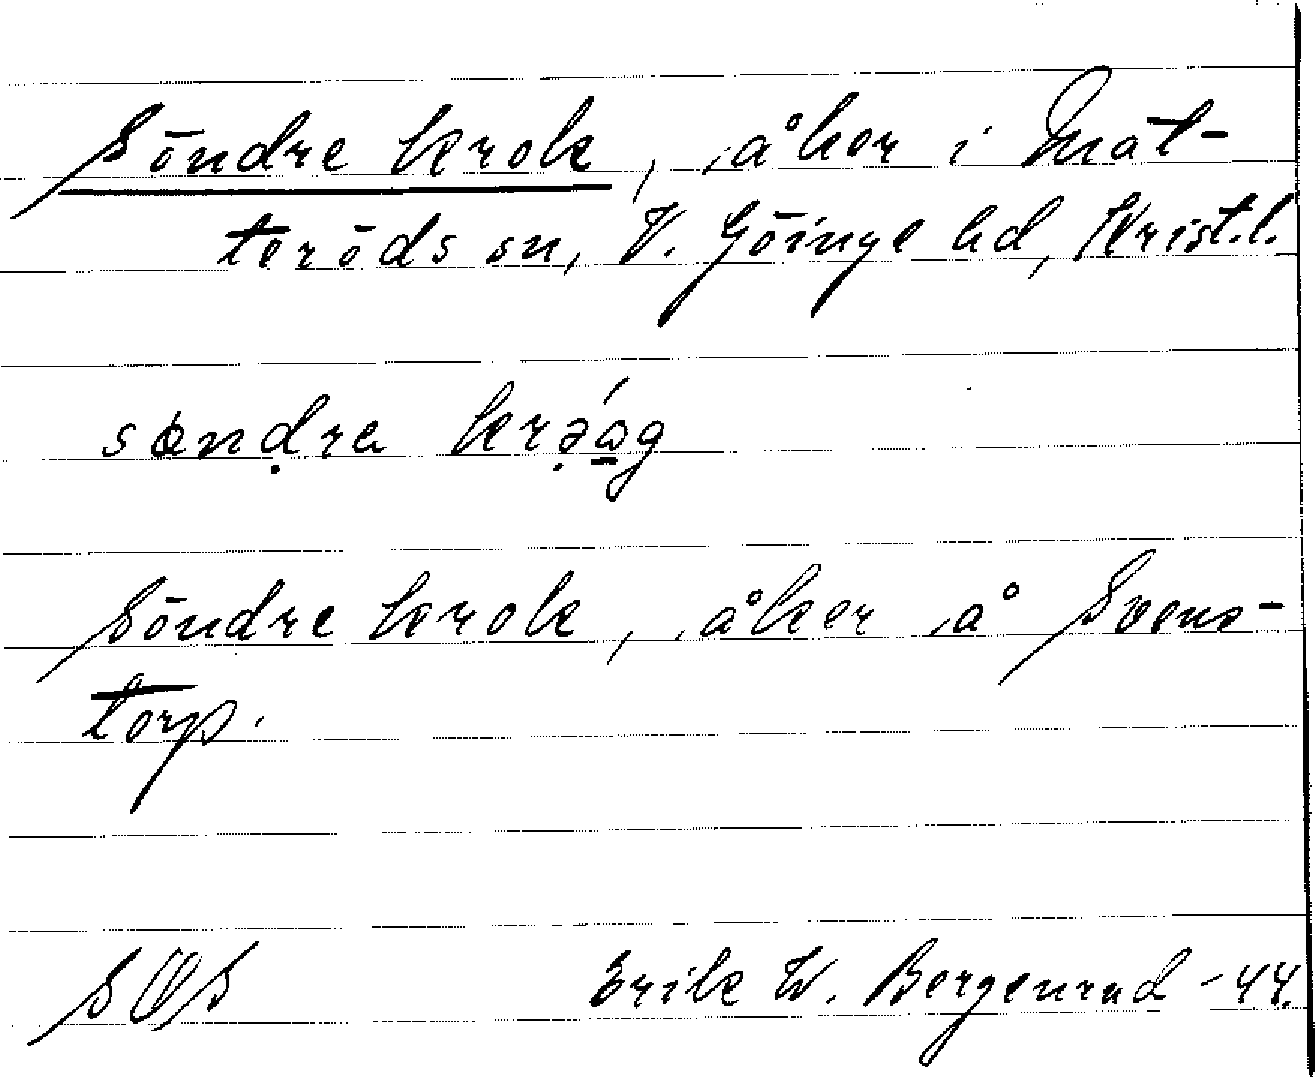 Söndre krok, åker i Mat-
teröds sn, V. Göinge hd, Krist.l.
sønḍra krə̣ág
Söndre krok, åker å Svens-
torp.
SOS Erik W. Bergenrud -44.